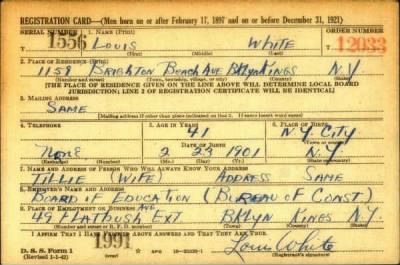 REGISTRATION CARD—(Men born on or after February 17, 1897 and on or before December 31, 1921)
SERIAL NUMBER 1. NAME (Print) ORDER NUMBER
1556 Louis White 12033
(First) (Middle) (Last)
2. PLACE OF RESIDENCE (Print)
1158 Brighton Beach Ave BKlyn Kings N.Y
(Number and street) (Town, township, village, or city) (County) (State)
[THE PLACE OF RESIDENCE GIVEN ON THE LINE ABOVE WILL DETERMINE LOCAL BOARD
JURISDICTION; LINE 2 OF REGISTRATION CERTIFICATE WILL BE IDENTICAL]
3. MAILING ADDRESS
SAME
[Mailing address if other than place indicated on line 2. If same insert word same]
4. TELEPHONE 5. AGE IN YEARS 6. PLACE OF BIRTH
41 N.Y. City
DATE OF BIRTH
None 2 23 1901 N.Y.
(Exchange) (Number) (Mo.) (Day) (Yr.) (State or country)
7. NAME AND ADDRESS OF PERSON WHO WILL ALWAYS KNOW YOUR ADDRESS
TILLIE (WIFE) ADDRESS SAME
8. EMPLOYER'S NAME AND ADDRESS
BOARD OF EDUCATION (BUREAU OF CONST.)
9. PLACE OF EMPLOYMENT OR BUSINESS
49 FlATbush AVE EXT BKlyn Kings N.Y.
(Number and street or R. F. D. number) (Town) (County) (State)
I AFFIRM THAT I HAVE VERIFIED ABOVE ANSWERS AND THAT THEY ARE TRUE.
D. S. S. Form 1
(Revised 1-1-42)
1991
Louis White
(Registrant's signature)